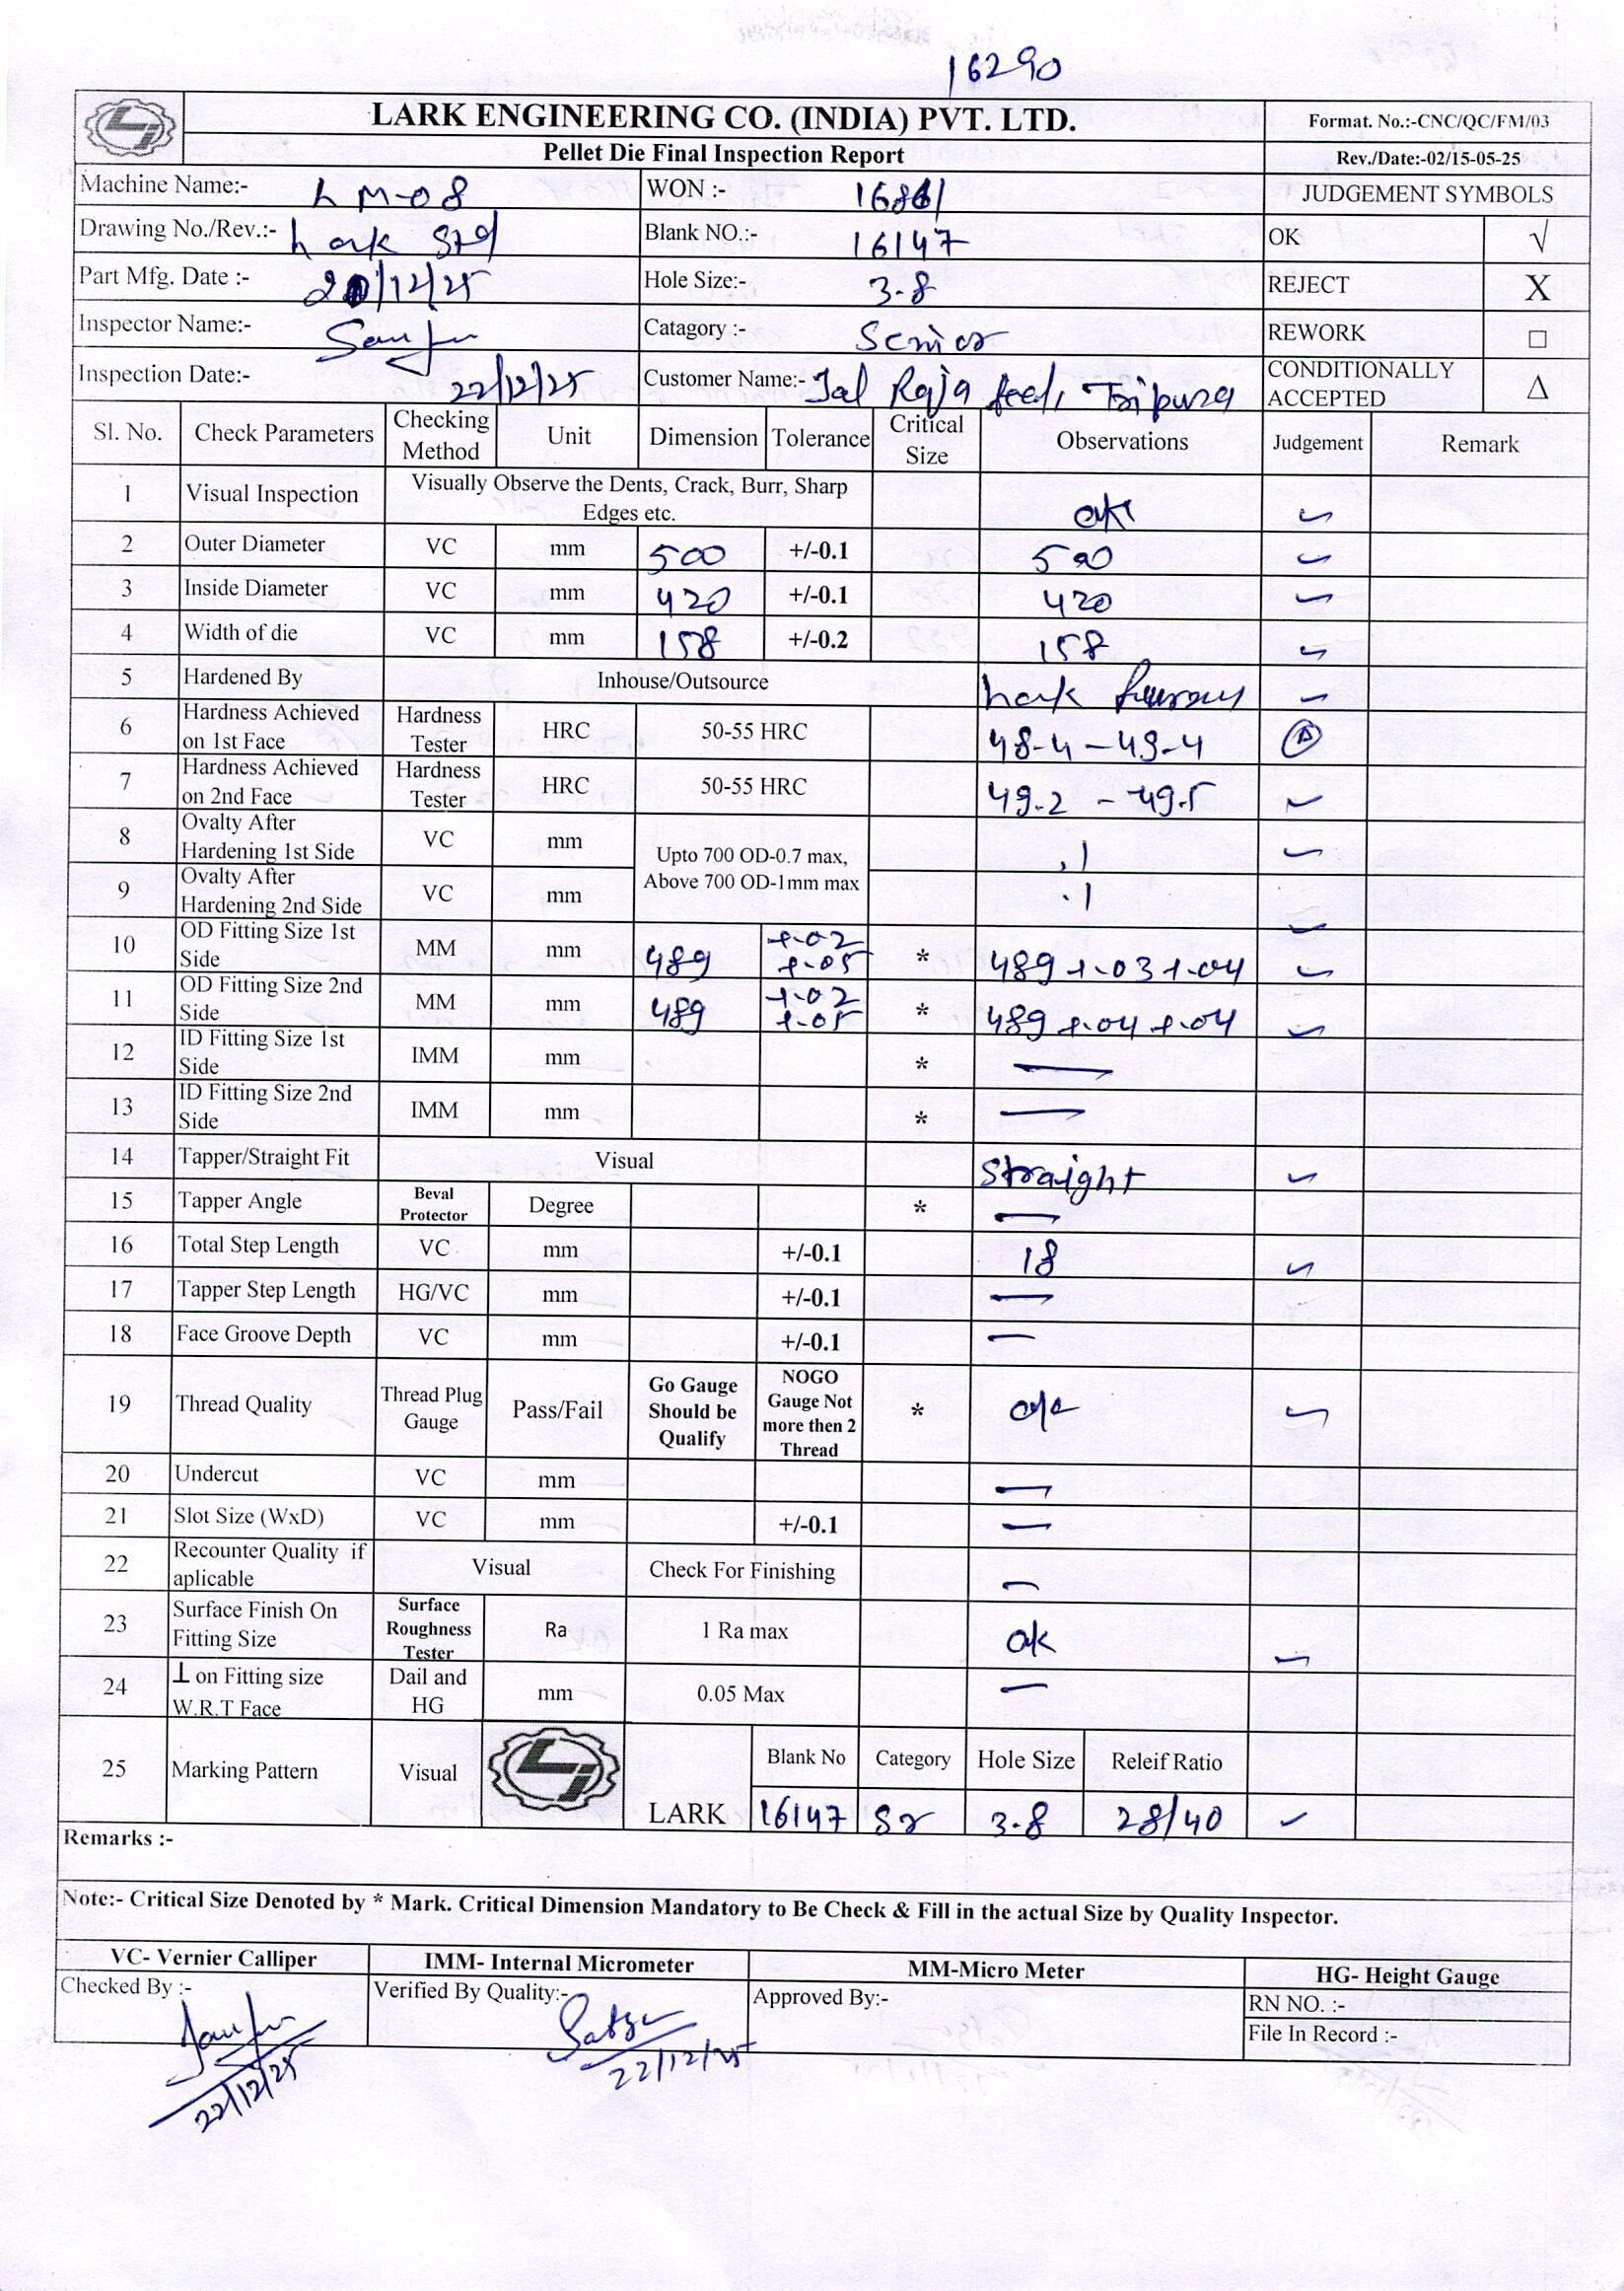 16290
LARK ENGINEERING CO. (INDIA) PVT. LTD.
Format. No.:-CNC/QC/FM/03
Pellet Die Final Inspection Report
Rev./Date:-02/15-05-25
Machine Name:- LM-08 WON :- JUDGEMENT SYMBOLS
Drawing No./Rev.:- Lark Std Blank NO.:- 16147 OK √
Part Mfg. Date :- /12/25 Hole Size:- 3.8 REJECT X
Inspector Name:- Catagory :- Senior REWORK □
Inspection Date:- 22/12/25 Customer Name:- Jal Raja feed, Tripura CONDITIONALLY ACCEPTED Δ
Sl. No. Check Parameters Checking Method Unit Dimension Tolerance Critical Size Observations Judgement Remark
1 Visual Inspection Visually Observe the Dents, Crack, Burr, Sharp Edges etc. ok ✓
2 Outer Diameter VC mm 500 +/-0.1 500 ✓
3 Inside Diameter VC mm 420 +/-0.1 420 ✓
4 Width of die VC mm 158 +/-0.2 158 ✓
5 Hardened By Inhouse/Outsource Lark ✓
6 Hardness Achieved on 1st Face Hardness Tester HRC 50-55 HRC 48.4 - 49.4 Δ
7 Hardness Achieved on 2nd Face Hardness Tester HRC 50-55 HRC 49.2 - 49.5 ✓
8 Ovalty After Hardening 1st Side VC mm Upto 700 OD-0.7 max, Above 700 OD-1mm max .1 ✓
9 Ovalty After Hardening 2nd Side VC mm .1 ✓
10 OD Fitting Size 1st Side MM mm 489 +.02 +.05 * 489 +.03 +.04 ✓
11 OD Fitting Size 2nd Side MM mm 489 +.02 +.05 * 489 +.04 +.04 ✓
12 ID Fitting Size 1st Side IMM mm * —
13 ID Fitting Size 2nd Side IMM mm * —
14 Tapper/Straight Fit Visual Straight ✓
15 Tapper Angle Beval Protector Degree * —
16 Total Step Length VC mm +/-0.1 18 ✓
17 Tapper Step Length HG/VC mm +/-0.1 —
18 Face Groove Depth VC mm +/-0.1 —
19 Thread Quality Thread Plug Gauge Pass/Fail Go Gauge Should be Qualify NOGO Gauge Not more then 2 Thread * ok ✓
20 Undercut VC mm —
21 Slot Size (WxD) VC mm +/-0.1 —
22 Recounter Quality if aplicable Visual Check For Finishing —
23 Surface Finish On Fitting Size Surface Roughness Tester Ra 1 Ra max ok ✓
24 ⊥ on Fitting size W.R.T Face Dail and HG mm 0.05 Max —
25 Marking Pattern Visual LARK Blank No Category Hole Size Releif Ratio
16147 Sr 3.8 28/40 ✓
Remarks :-
Note:- Critical Size Denoted by * Mark. Critical Dimension Mandatory to Be Check & Fill in the actual Size by Quality Inspector.
VC- Vernier Calliper IMM- Internal Micrometer MM-Micro Meter HG- Height Gauge
Checked By :- Verified By Quality:- Approved By:- RN NO. :-
File In Record :-
22/12/25 22/12/25